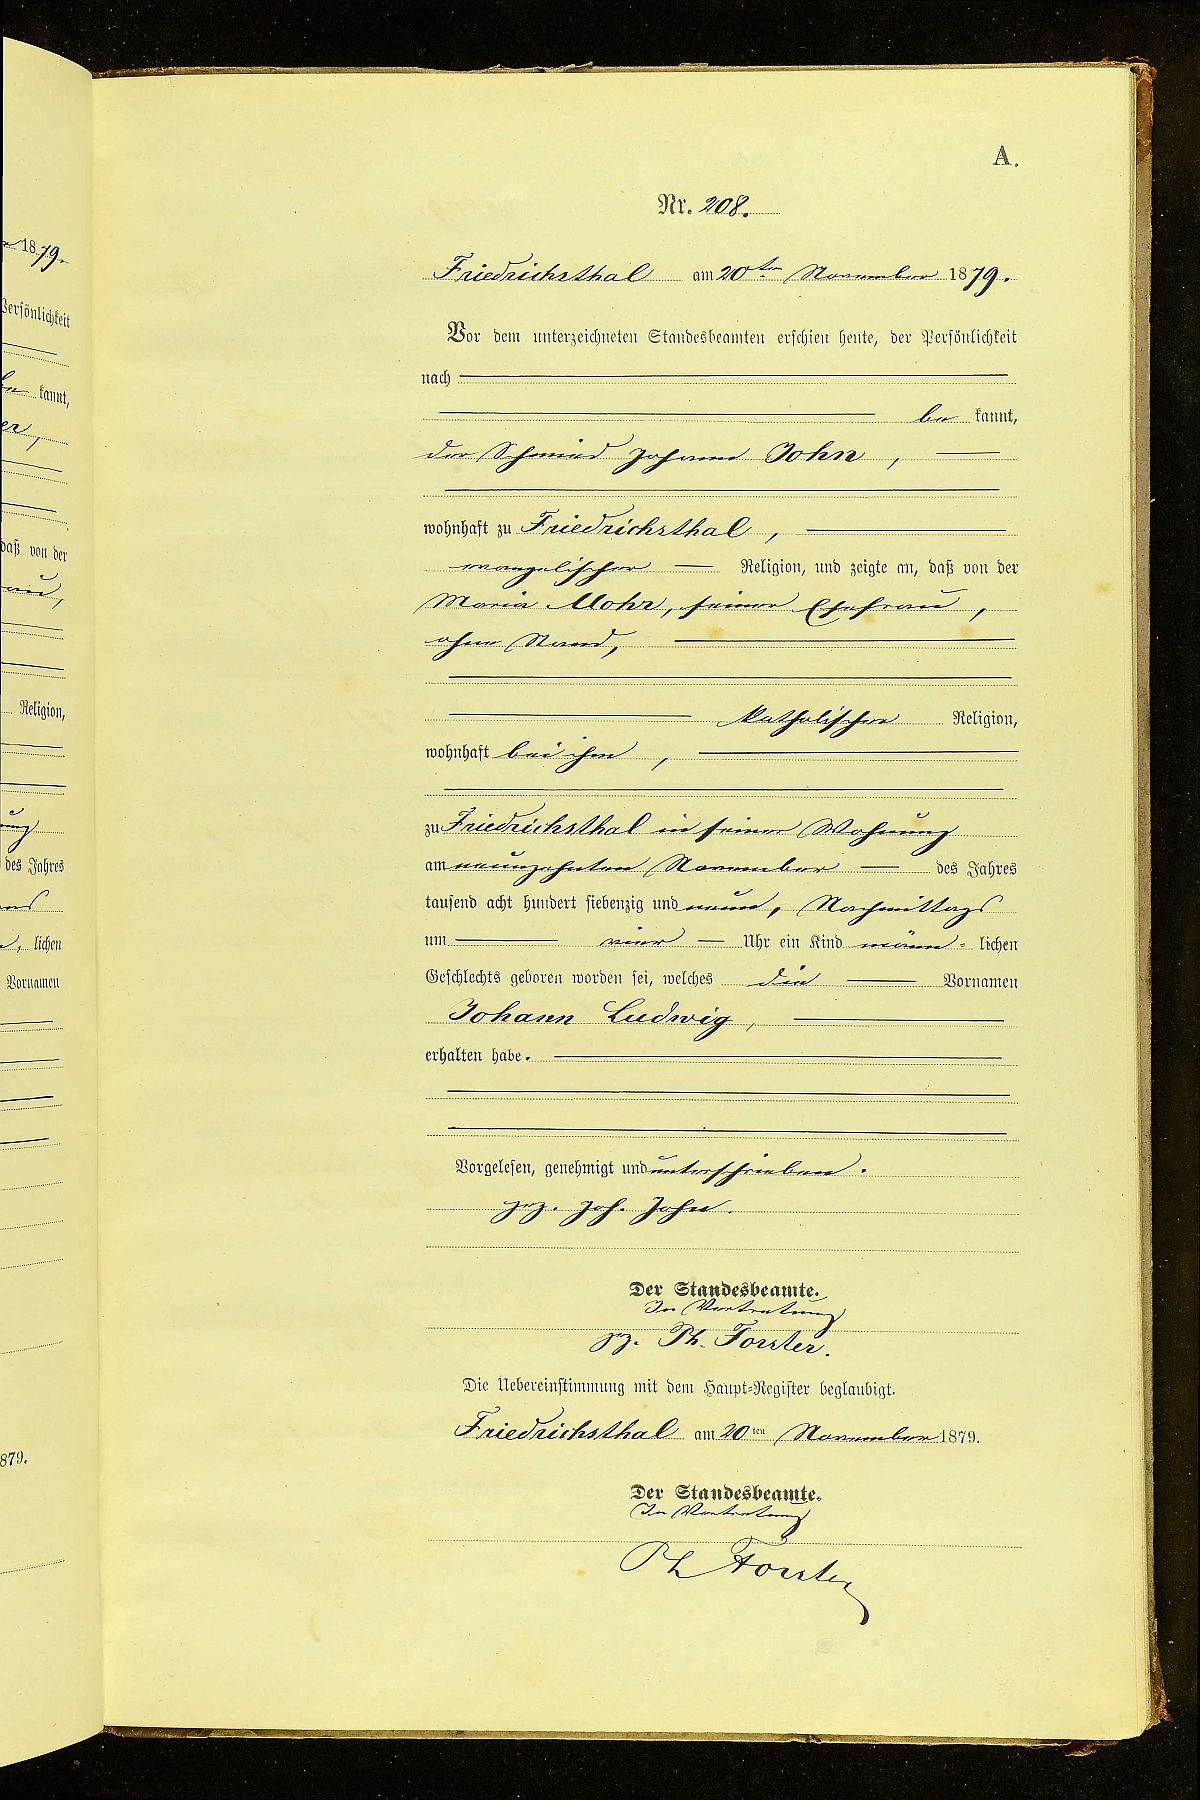 A.
Nr. 208.
Friedrichsthal am 20ten November 1879.
Vor dem unterzeichneten Standesbeamten erschien heute, der Persönlichkeit
nach
be kannt,
der Schmied Johann John,
wohnhaft zu Friedrichsthal,
evangelischer Religion, und zeigte an, daß von der
Maria Mohr, seiner Ehefrau,
ohne Stand,
katholischer Religion,
wohnhaft bei ihm,
zu Friedrichsthal in seiner Wohnung
am neunzehnten November des Jahres
tausend acht hundert siebenzig und neun, Nachmittags
um vier Uhr ein Kind männ- lichen
Geschlechts geboren worden sei, welches die Vornamen
Johann Ludwig,
erhalten habe.
Vorgelesen, genehmigt und unterschrieben.
gez. Joh. John.
Der Standesbeamte.
In Vertretung
gez. Ph. Forster.
Die Uebereinstimmung mit dem Haupt-Register beglaubigt.
Friedrichsthal am 20ten November 1879.
Der Standesbeamte.
In Vertretung
Ph Forster
1879.
Persönlichkeit
kannt,
daß von der
Religion,
des Jahres
lichen
Vornamen
879.